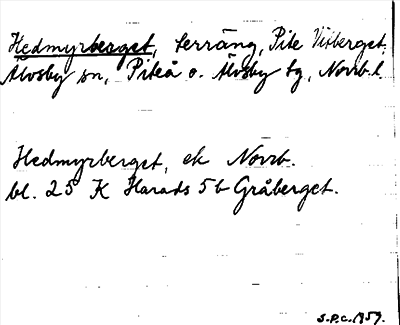 Hedmyrberget, terräng, Pite Vitberget.
Älvsby sn, Piteå o. Älvsby tg, Norrb. l.
Hedmyrberget, ek Norrb.
bl. 25 K Harads 5b Gråberget.
S.P.C. 1959.